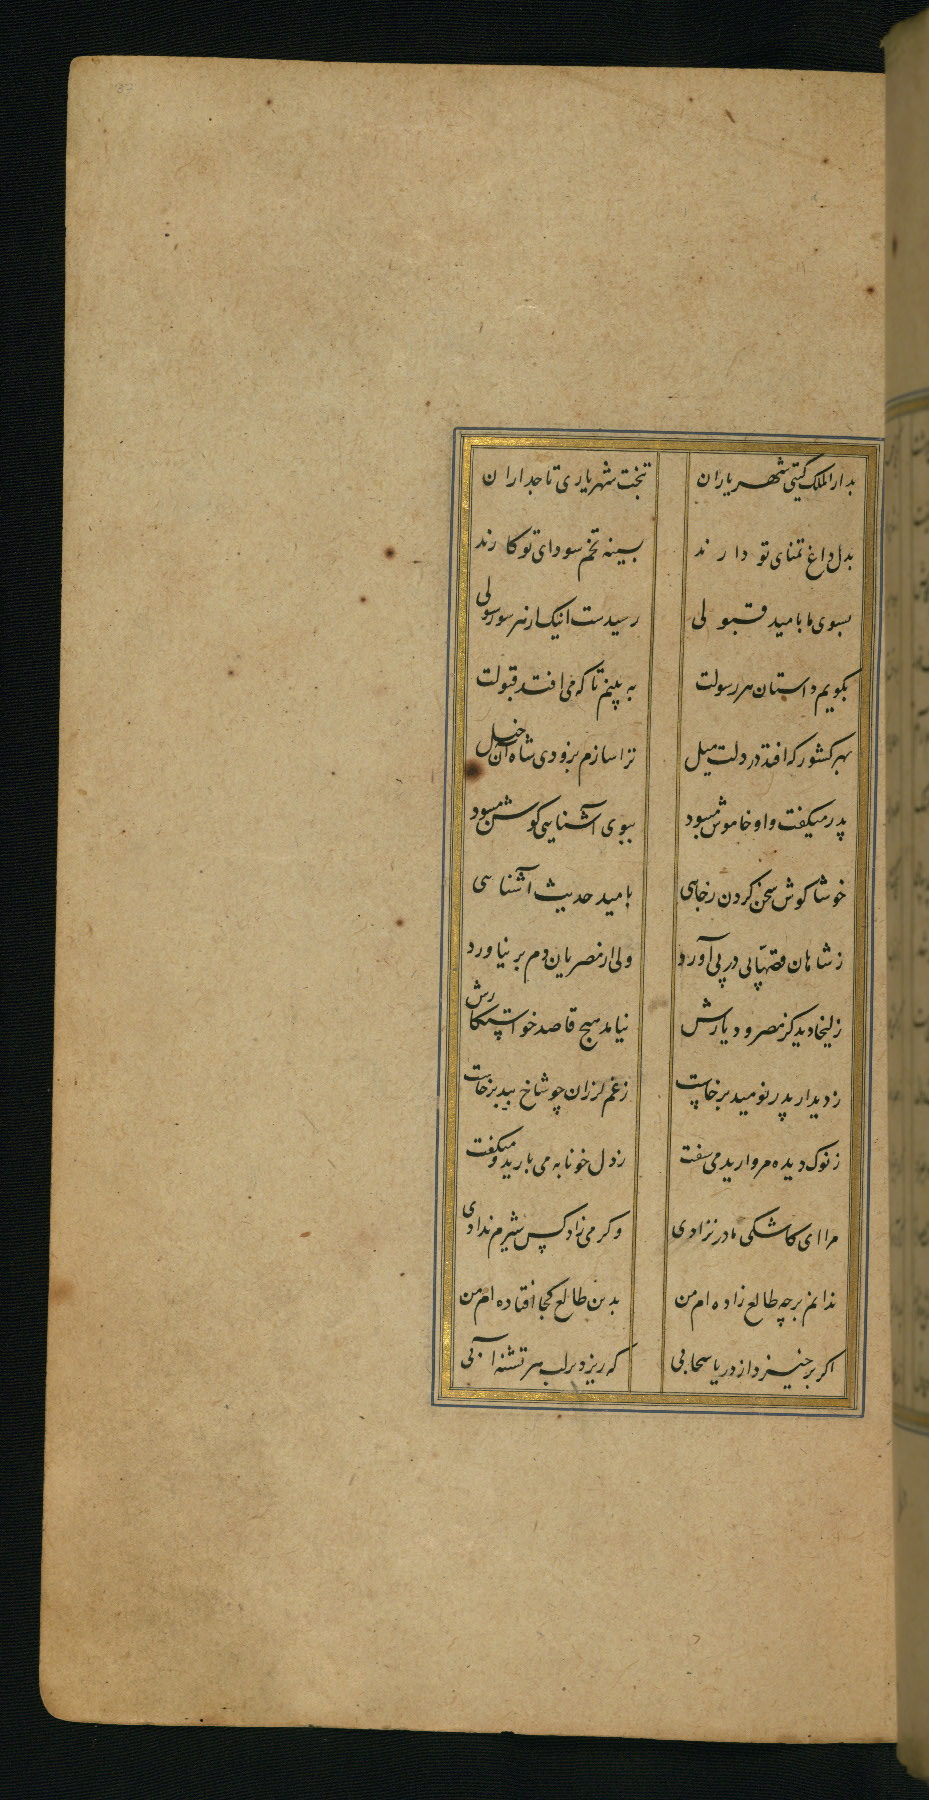 بدار الملک کیتی شهریاران بتخت شهریاری تاجداران
بدل داغ تمنای تو دارند بسینه تخم سودای تو کارند
بسوی ما بامید قبولی رسیدست اینک از هر سو رسولی
بکویم داستان هر رسولت به بینم تا که می افتد قبولت
بهر کشور که افتد در دلت میل ترا سازم بزودی شاه آن خیل
پدر میکفت و او خاموش میبود ببوی آشنایی کوشش میبود
خوشا کوش سخن کردن زجایی بامید حدیث آشنایی
ز شاهان قصها پی در پی آورد ولی از مصریان دم بر نیاورد
زلیخا دید کز مصر و دیارش نیامد هیچ قاصد خواستکارش
ز دیدار پدر نومید برخاست ز غم لرزان چو شاخ بید برخاست
ز نوک دیده مروارید می سفت ز دل خونابه می بارید و میکفت
مرا ای کاشکی مادر نزادی وکر می زاد کس شیرم ندادی
ندانم بر چه طالع زاده ام من بدین طالع کجا افتاده ام من
اکر برخیزد از دریا سحابی که ریزد بر لب هر تشنه آبی